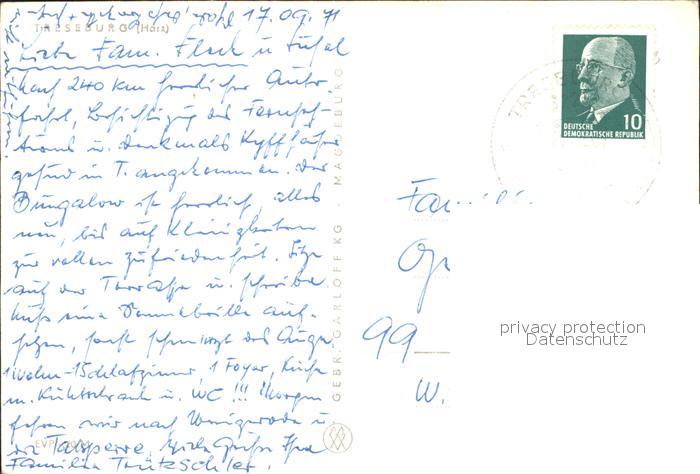 17.09.71
TRESEBURG (Harz)
Liebe Fam. Fleck u
nach 240 km herrlicher Auto-
fahrt, Besichtigung des Fernseh-
turms u. Denkmals Kyffhäuser
gesund in T. angekommen. Der
Bungalow ist herrlich, alles
neu, bis auf Kleinigkeiten
zur vollen Zufriedenheit. Sitze
auf der Terrasse u. schreibe
muß eine Sonnenbrille auf-
setzen, sonst schmerzt das Auge.
1 Wohn-1Schlafzimmer, 1 Foyer, Küche
m. Kühlschrank u. WC !!! Morgen
fahren wir nach Wernigerode u.
zur Talsperre. Viele Grüße Ihre
Familie Trützschler.
EVP
GEBR. GARLOFF KG · MAGDEBURG
TRESEB
10
DEUTSCHE
DEMOKRATISCHE REPUBLIK
Fa
99
W.
privacy protection
Datenschutz